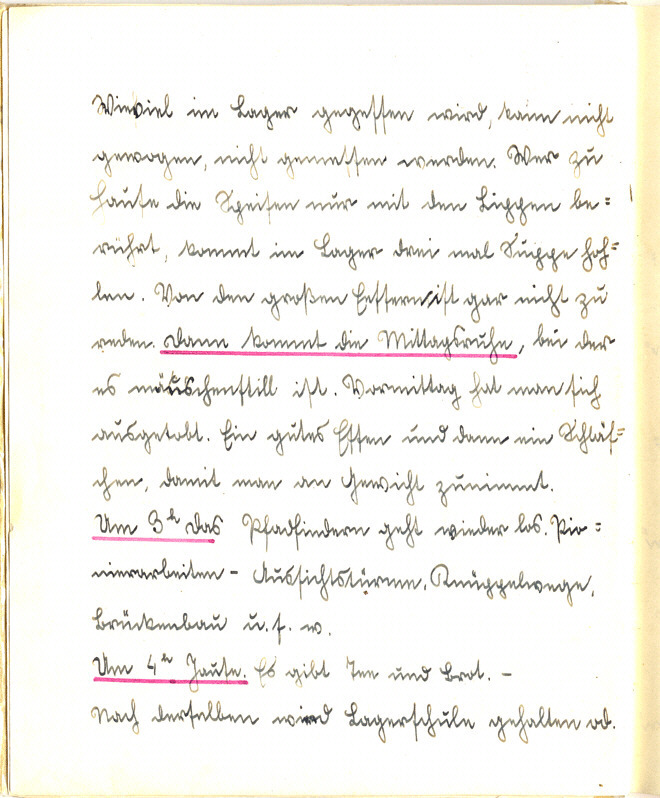 Wieviel im Lager gegessen wird, kann nicht
gewogen, nicht gemessen werden. Wer zu
Hause die Speisen nur mit den Lippen be=
rührt, kommt im Lager drei mal Suppe hoh=
len. Von den großen Essern ist gar nicht zu
reden. Dann kommt die Mittagsruhe, bei der
es mäuschenstill ist. Vormittag hat man sich
ausgetobt. Ein gutes Essen und dann ein Schläf=
chen, damit man an Gewicht zunimmt.
Um 3h das Pfadfindern geht wieder los. Pio=
nierarbeiten - Aussichtstürme, Knüppelwege,
Brückenbau u. s. w.
Um 4h Jause. Es gibt Tee und Brot. -
Nach derselben wird Lagerschule gehalten od.